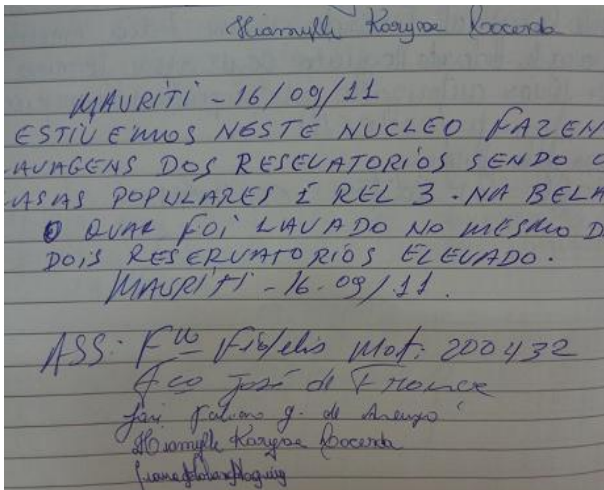 Hiamylle Karyne Lacerda
MAURITI - 16/09/11
ESTIVEMOS NESTE NUCLEO FAZEN
LAVAGENS DOS RESEVATORIOS SENDO
CASAS POPULARES E REL 3. NA BELA
O QUAL FOI LAVADO NO MESMO D
DOIS RESERVATORIOS ELEVADO.
MAURITI - 16-09/11.
ASS: Fco Fidelis Mat: 200432
Fco José de França
José Fabiano g. de Araujo
Hiamylle Karyne Lacerda